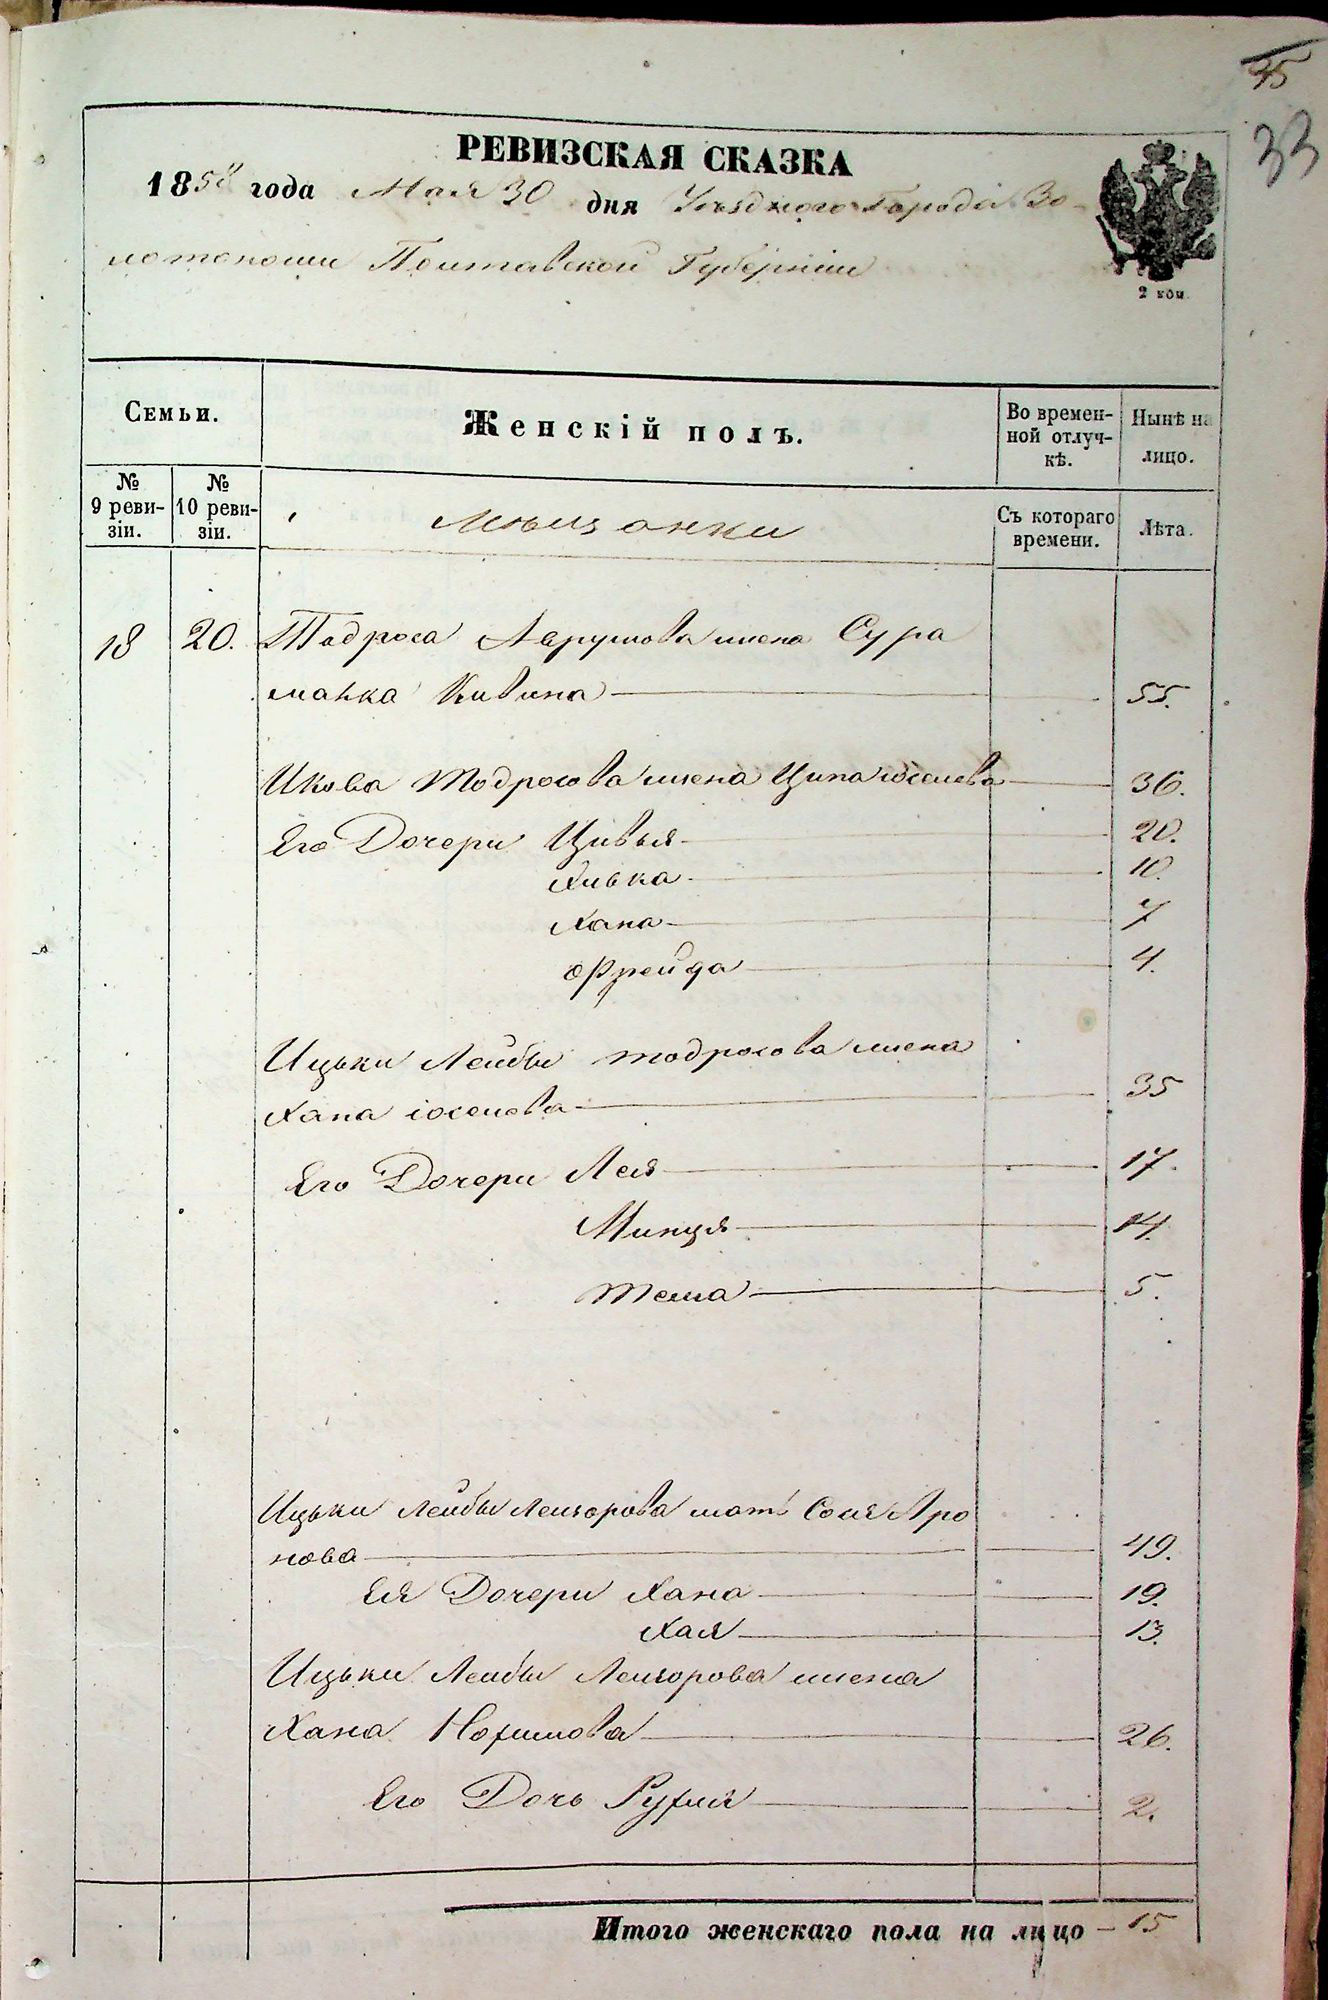 45
33
РЕВИЗСКАЯ СКАЗКА
1858 года Мая 30 дня Уезднаго Города Зо-
лотоноши Полтавской Губерніи
2 кои.
Семьи.
Женскій полъ.
Во времен-
ной отлуч-
кѣ.
Нынѣ на
лицо.
№
9 реви-
зіи.
№
10 реви-
зіи.
Мѣщанки
Съ котораго
времени.
Лѣта.
18 20. Тодроса Аврумова жена Сура
малка Кивина 55.
Икова Тодросова жена Ципа іоселева 36.
Его Дочери Цивья 20.
Ривка 10.
Хана 7
Фрейда 4.
Ицьки Лейбы тодросова жена
Хана іоселева 35
Его Дочери Лея 17.
Минця 14.
Тема 5.
Ицьки Лейбы Лейзорова мать Сося Аро
нова 49.
Ея Дочери Хана 19.
Хая 13.
Ицьки Лейбы Лейзорова жена
Хана Нохимова 26.
Его Дочь Рухля 2.
Итого женскаго пола на лицо – 15